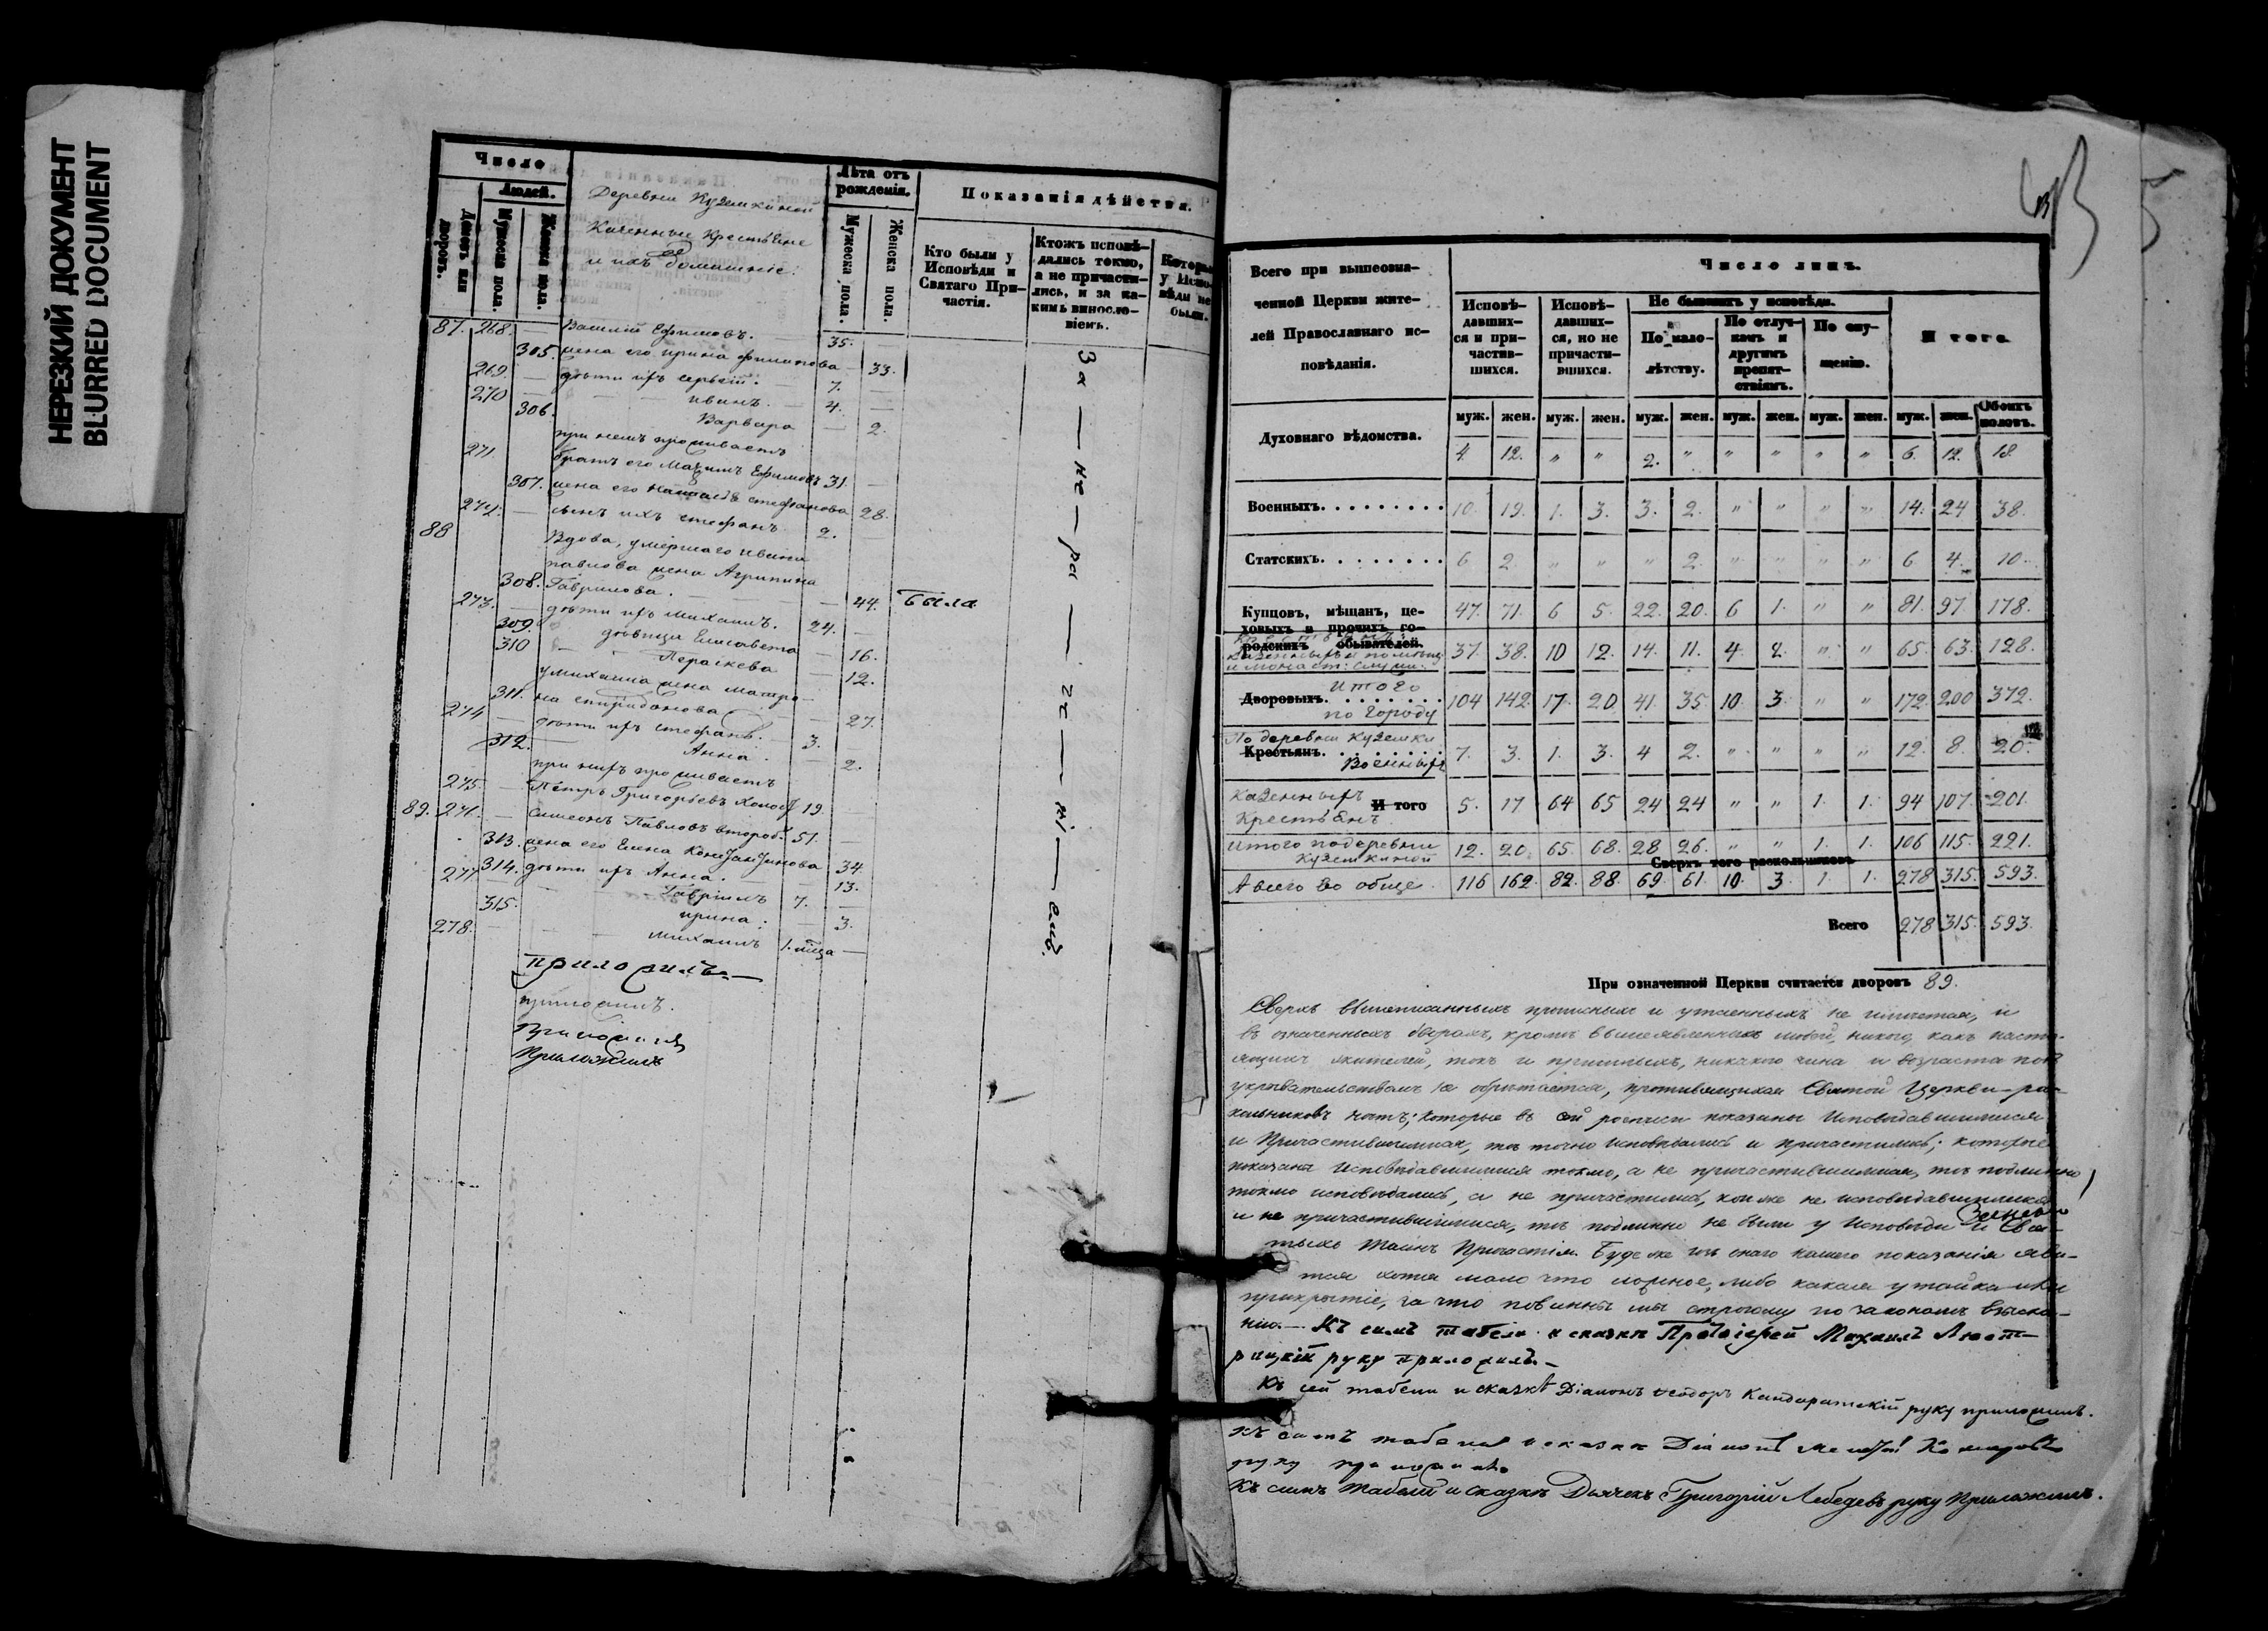 НЕРЕЗКИЙ ДОКУМЕНТ
BLURRED DOCUMENT
Число
Людей.
Домовъ или дворовъ.
Мужеска пола.
Женска пола.
Деревни Куземкиной
Казенные Крестьяне
и ихъ домашніе:
Лѣта отъ рожденія.
Мужеска пола.
Женска пола.
Показанія дѣйства.
Кто были у Исповѣди и Святаго Причастія.
Ктожъ исповѣдались токмо, а не причастились, и за какимъ винословіемъ.
Которые у Исповѣди не были.
87. 268. — Василій Ефимовъ. 35.
305. жена его Ирина Филипова — 33.
269. — дѣти ихъ Сергѣй. — 7. —
270 — Иванъ. — 4. —
306. Варвара — 2.
при немъ проживаетъ
271. братъ его Максимъ Ефимовъ 31. —
307. жена его Наталья Стефанова 28.
272. — сынъ ихъ Стефанъ. 2.
88 Вдова, умершаго Ивана
Павлова жена Агрипина
308. Гаврилова. — 44. была
273. — дѣти ихъ Михаилъ. 24. —
309. дѣвица Елисавета — 16.
310 — Параскева — 12.
у Михаила жена Матро-
311. на Спиридонова — 27.
274 — дѣти ихъ Стефанъ. — 3. —
312. — Анна. — 2.
при нихъ проживаетъ
275. — Петръ Григорьевъ холостъ 19. —
89. 276. — Симеонъ Павловъ второбр. 51. —
313. жена его Елена Константинова 34.
314. дѣти ихъ Анна. — 13.
277. — Гавріилъ 7. —
315. Ирина. — 3.
278. — Михаилъ 1. мѣца —
За — не — ра — — че — — ні — емъ.
приложилъ
приложилъ.
приложилъ
Приложилъ
Всего при вышеозначенной Церкви жителей Православнаго исповѣданія.
Число лицъ.
Исповѣдавшихся и причастившихся.
Исповѣдавшихся, но не причастившихся.
Не бывшихъ у исповѣди.
По малолѣтству.
По отлучкамъ и другимъ препятствіямъ.
По опущенію.
Итого
муж. жен. муж. жен. муж. жен. муж. жен. муж. жен. муж. жен. Обоихъ половъ.
Духовнаго вѣдомства. 4. 12. " " 2. " " " " " 6. 12. 18.
Военныхъ. 10. 19. 1. 3. 3. 2. " " " " 14. 24 38.
Статскихъ. 6 2 " " " 2. " " " " 6 4. 10.
Купцовъ, мѣщанъ, цеховыхъ и прочихъ городскихъ обывателей. 47. 71. 6 5. 22. 20. 6 1. " " 81. 97. 178.
Казенныхъ и помѣщ.
и монаст: служи: 37. 38. 10 12. 14. 11. 4. 2. " " 65. 63. 128.
Дворовыхъ. Итого
по городу 104 142 17. 20 41. 35. 10. 3. " " 172. 200 372.
По деревни Куземки
Крестьянъ. Военныхъ 7. 3. 1. 3. 4 2. " " " " 12. 8. 20.
Казенныхъ И того
Крестьянъ. 5. 17 64 65 24 24 " " 1. 1. 94 107. 201.
Итого по деревни
Куземкиной 12. 20. 65. 68. 28 26. " " 1. 1. 106 115. 221.
Сверхъ того раскольниковъ
А всего во обще. 116 162. 82. 88. 69. 61. 10. 3. 1. 1. 278 315. 593.
Всего 278 315. 593.
При означенной Церкви считается дворовъ 89.
Сверхъ вышеписанныхъ прописныхъ и утаенныхъ не имѣется, и
въ означенныхъ дворахъ, кромѣ вышеявленныхъ людей, никого, какъ насто-
ящихъ жителей, такъ и пришлыхъ, никакого чина и возраста подъ
укрывательствомъ не обрѣтается, противящихся Святой Церкви рас-
кольниковъ нѣтъ; которые въ сей росписи показаны Исповѣдавшимися
и Причастившимися, тѣ точно исповѣдались и причастились; которые
показаны исповѣдавшимися токмо, а не причастившимися, тѣ подлинно
токмо исповѣдались, а не причастились, кои же не исповѣдавшимися
и не причастившимися, тѣ подлинно не были у Исповѣди и Свя-
тыхъ Таинъ Причастія. Буде же изъ онаго нашего показанія яви-
тся хотя мало что ложное, либо какая утайка или
прикрытіе, за что повинны мы строгому по законамъ взыска-
нію. — Къ симъ табели и сказкѣ Протоіерей Михаилъ
руку приложилъ. —
Къ сей табели и сказкѣ Діаконъ Ѳеодоръ Кандаритскій руку приложилъ.
Къ симъ табели и сказкѣ Комаровъ
руку приложилъ.
Къ симъ табели и сказкѣ Дьячекъ Григорій Лебедевъ руку приложилъ.